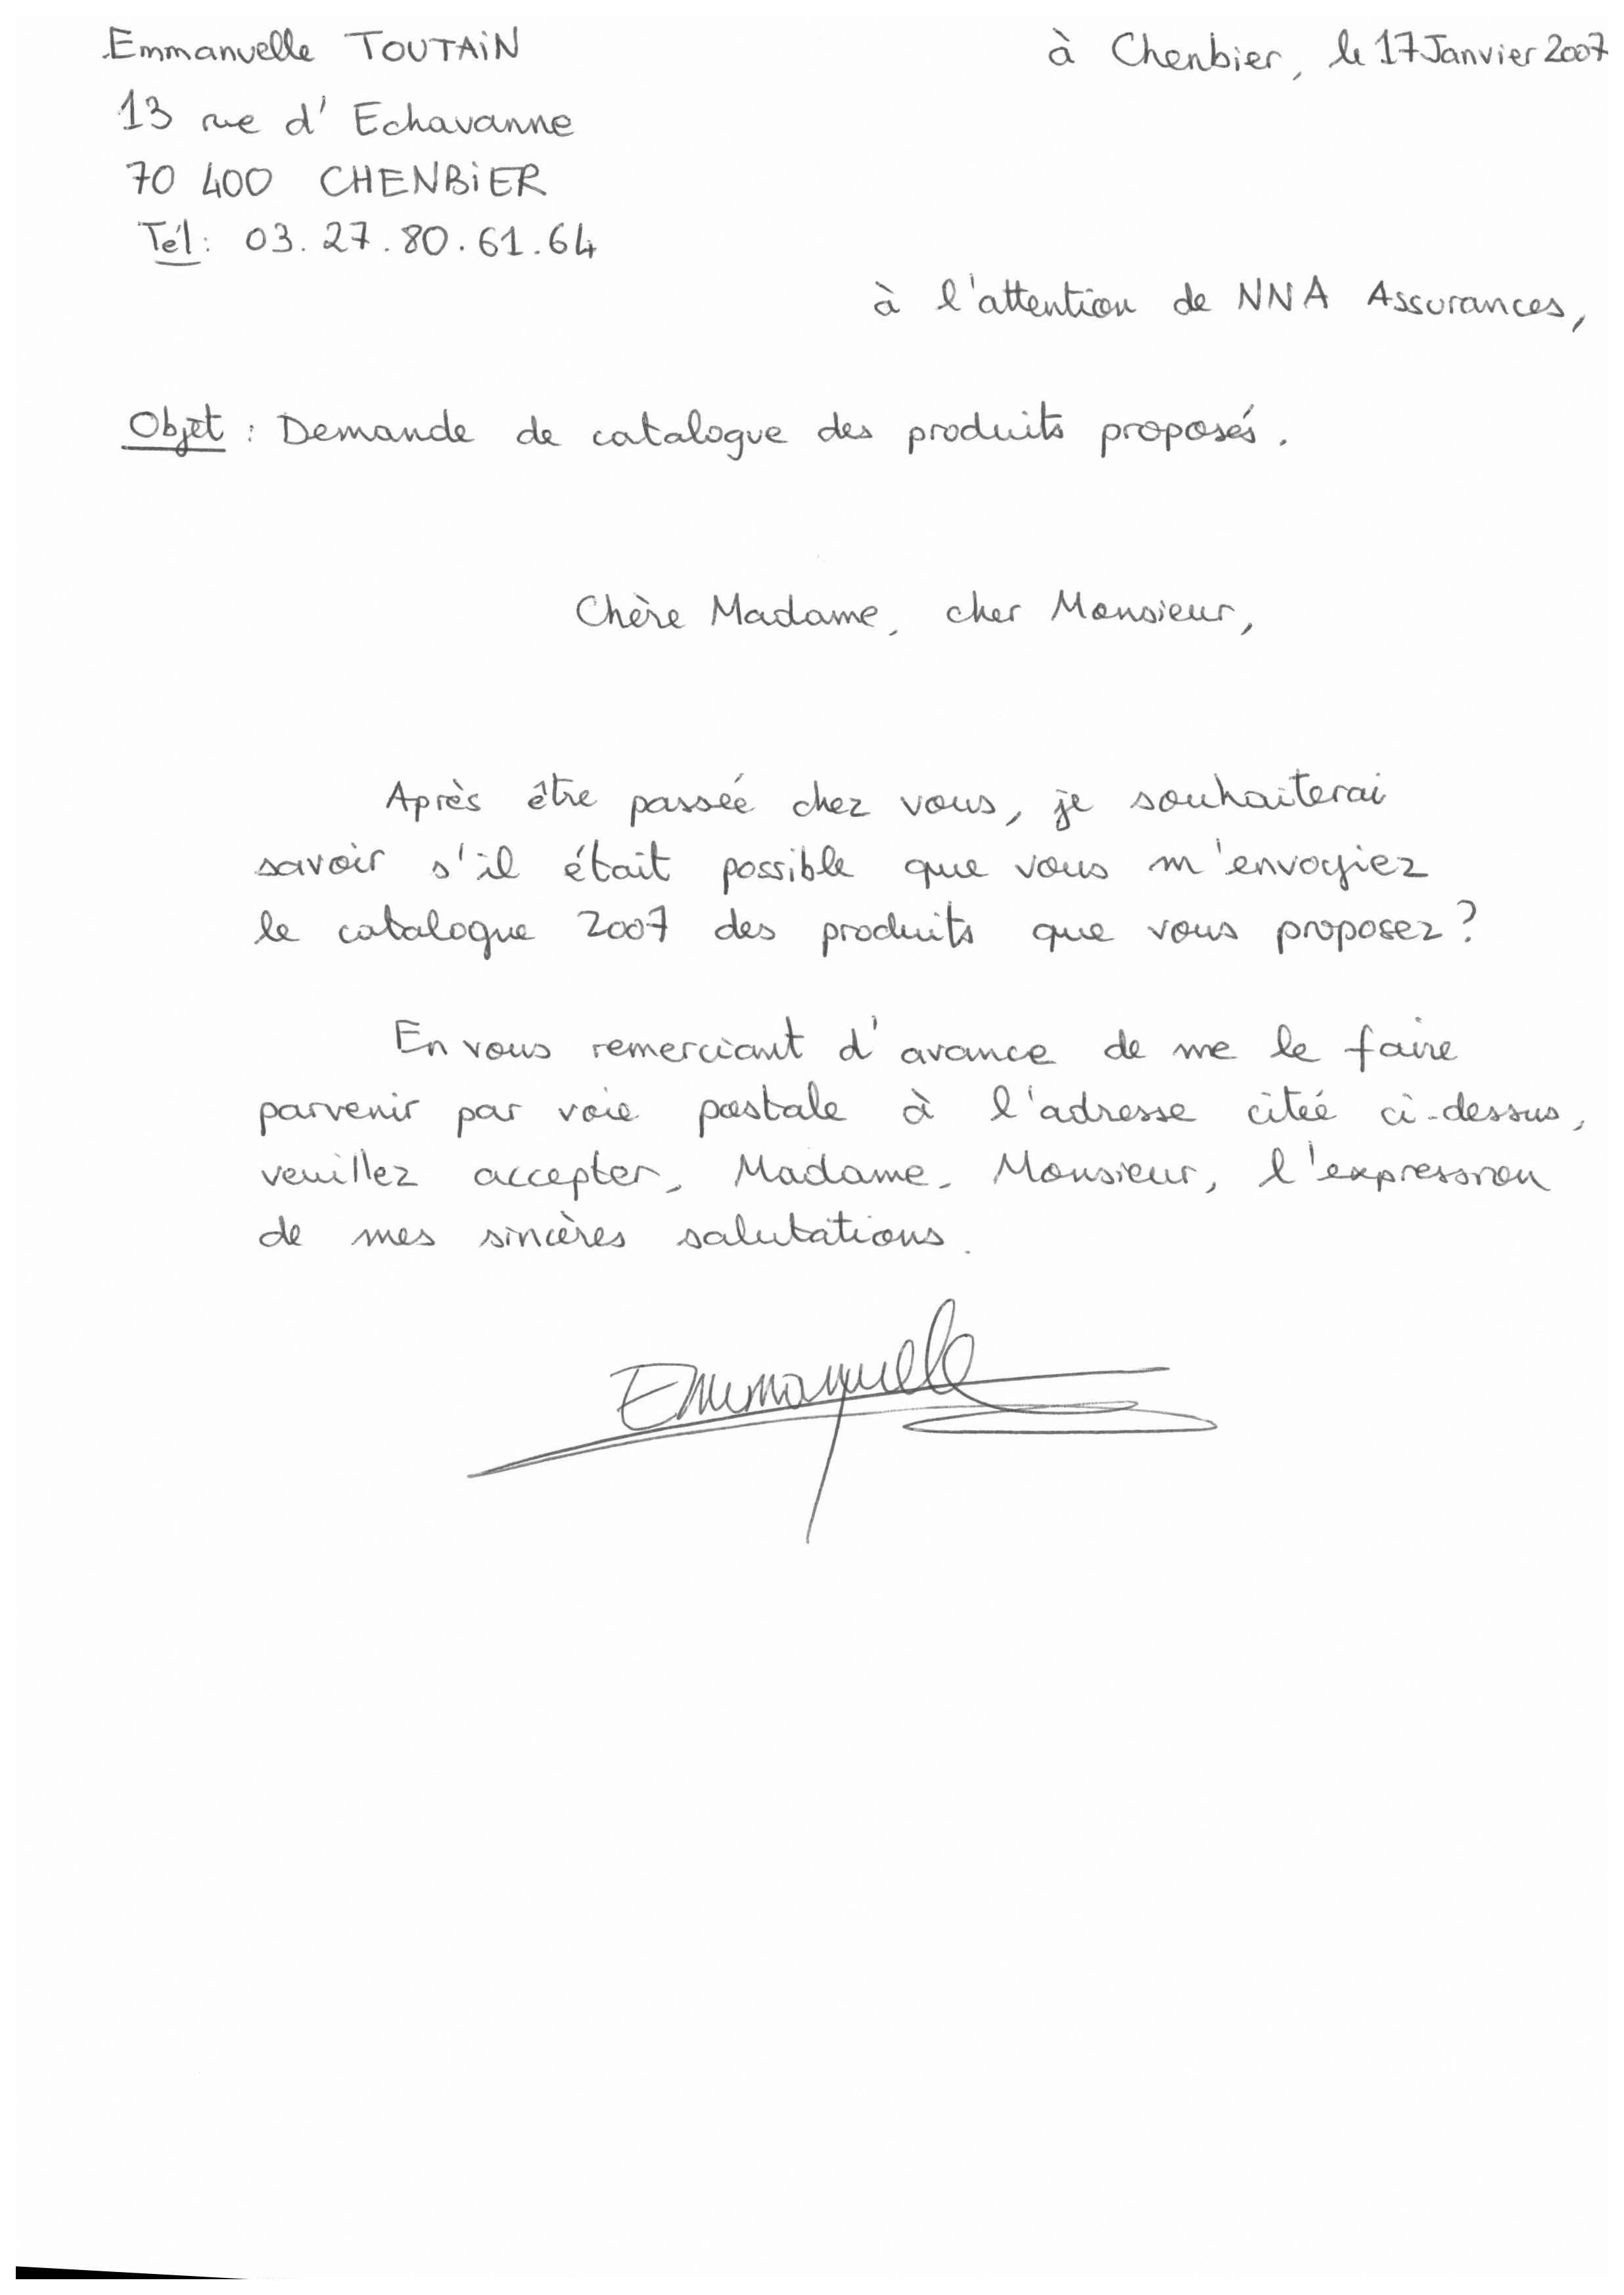 Emmanuelle TOUTAIN
à Chenbier, le 17 Janvier 2007
13 rue d'Echavanne
70 400 CHENBIER
Tél : 03.27.80.61.64
à l'attention de NNA Assurances,
Objet : Demande de catalogue des produits proposés.
Chère Madame, cher Monsieur,
Après être passée chez vous, je souhaiterai
savoir s'il était possible que vous m'envoyiez
le catalogue 2007 des produits que vous proposez ?
En vous remerciant d'avance de me le faire
parvenir par voie postale à l'adresse citée ci-dessus,
veuillez accepter, Madame, Monsieur, l'expression
de mes sincères salutations.
Emmanuelle